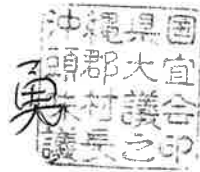 沖縄県国
頭郡大宜
味村議会
議長之印
勇